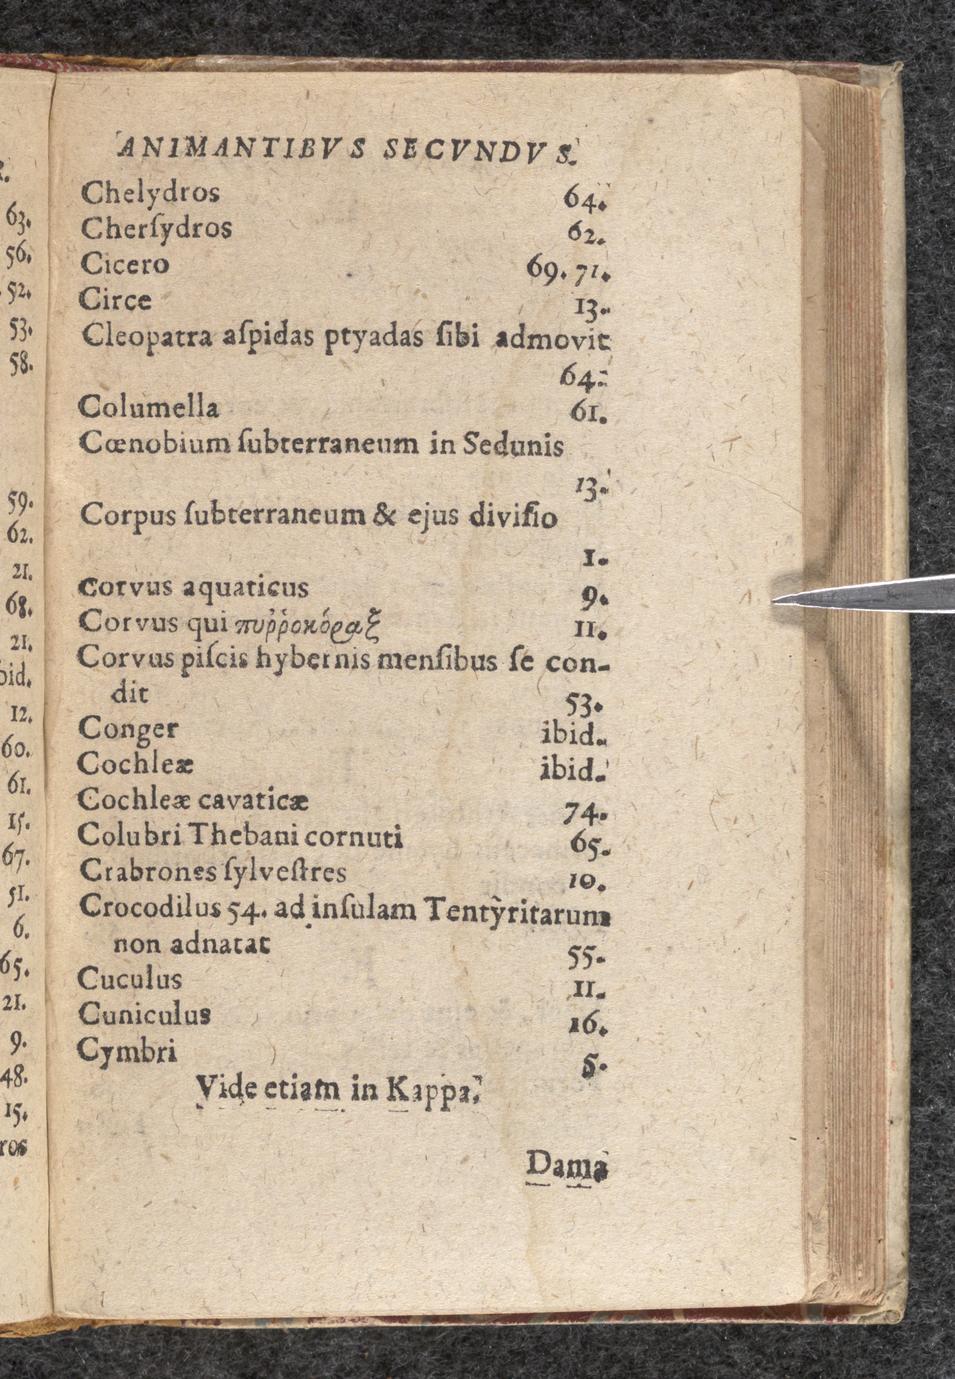 ANIMANTIBVS SECVNDVS.
Chelydros 64.
Cherſydros 62.
Cicero 69. 71.
Circe 13.
Cleopatra aſpidas ptyadas ſibi admovit
64.
Columella 61.
Cœnobium ſubterraneum in Sedunis
13.
Corpus ſubterraneum & ejus diviſio
1.
Corvus aquaticus 9.
Corvus qui πυῤῥοκόραξ 11.
Corvus piſcis hybernis menſibus ſe con-
dit 53.
Conger ibid.
Cochleæ ibid.
Cochleæ cavaticæ 74.
Colubri Thebani cornuti 65.
Crabrones ſylveſtres 10.
Crocodilus 54. ad inſulam Tentyritarum
non adnatat 55.
Cuculus 11.
Cuniculus 16.
Cymbri 5.
Vide etiam in Kappa.
Dama
63.
56.
52.
53.
58.
59.
62.
21.
68.
21.
12.
60.
61.
15.
67.
51.
6.
65.
21.
9.
48.
15.